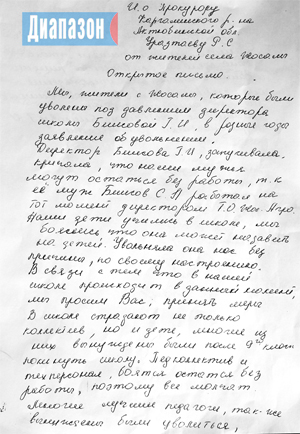 Диапазон
И.о Прокурору
Каргалинского р-на
Актюбинской обл
Уразтаеву Р.С
от жителей села Жосалы
Открытое письмо.
Мы, жители с Жосалы, которые были
уволены под давлением директора
школы Блиновой Г.И, в разные годы
заявление об увольнении.
Директор Блинова Г.И, запугивала,
кричала, что наши мужья
могут остаться без работы, т.к
её муж Блинов С.А работал на
тот момент директором Т.О.О
Наши дети учились в школе, мы
боялись что она может наказать
на детей. Увольняла она нас без
причины, по своему настроению.
В связи с тем что в нашей
школе происходит в данный момент,
мы просим Вас, принять меры
В школе страдают не только
коллектив, но и дети, многие из
них вынуждены были после 9го класса
покинуть школу. Пед коллектив и
тех персонал, боятся остатся без
работы, поэтому все молчат
Многие лучшие педагоги, так-же
вынуждены были уволиться,